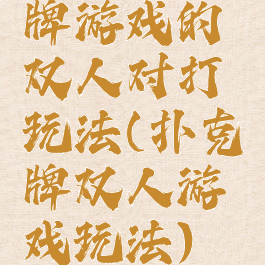 牌游戏的
双人对打
玩法(扑克
牌双人游
戏玩法)